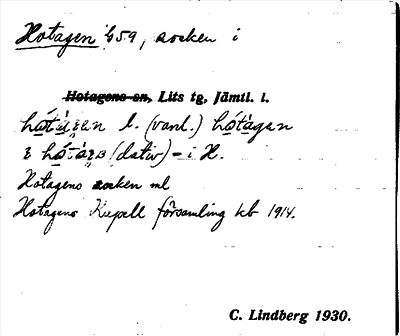 Hotagen 659, socken i
Hotagens sn, Lits tg, Jämtl. l.
hótàgen l. (vanl.) hótàgan
i hótàgɷ (dativ) - i H.
Hotagens socken ml
Hotagens Kapell församling kb 1914.
C. Lindberg 1930.